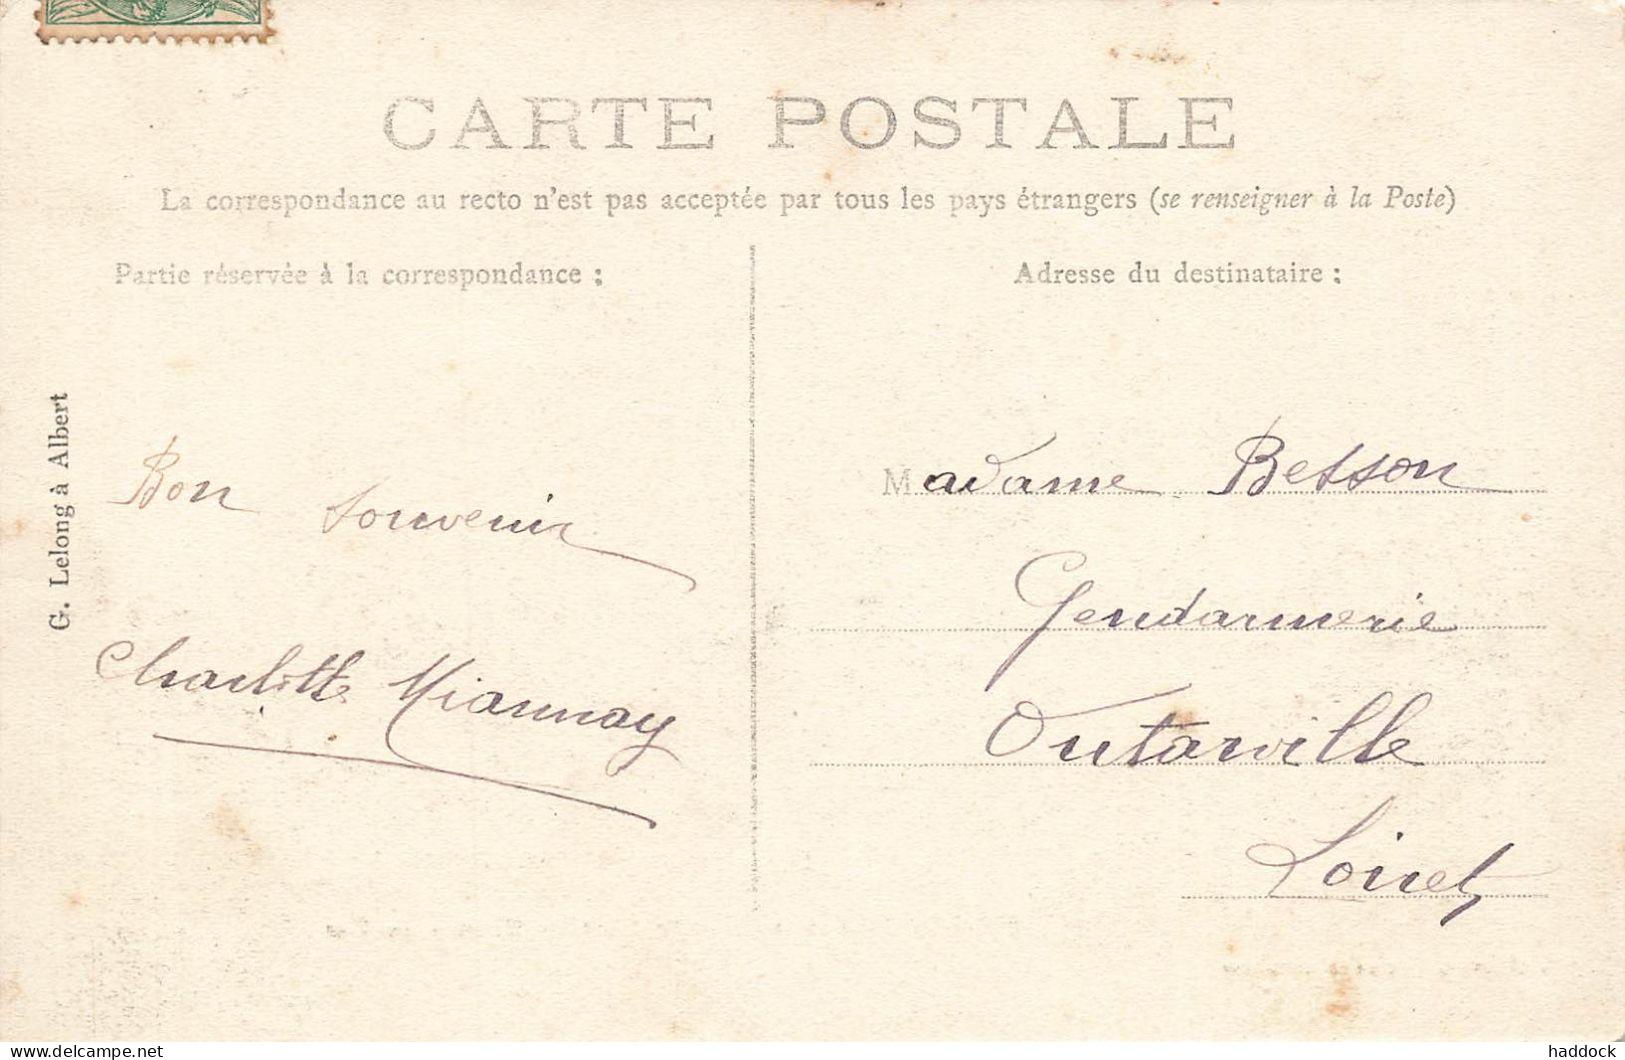 CARTE POSTALE
La correspondance au recto n'est pas acceptée par tous les pays étrangers (se renseigner à la Poste)
Partie réservée à la correspondance :
Adresse du destinataire :
G. Lelong à Albert
Bon souvenir
Charlotte Miannay
Madame Besson
Gendarmerie
Outarville
Loiret
delcampe.net
haddock